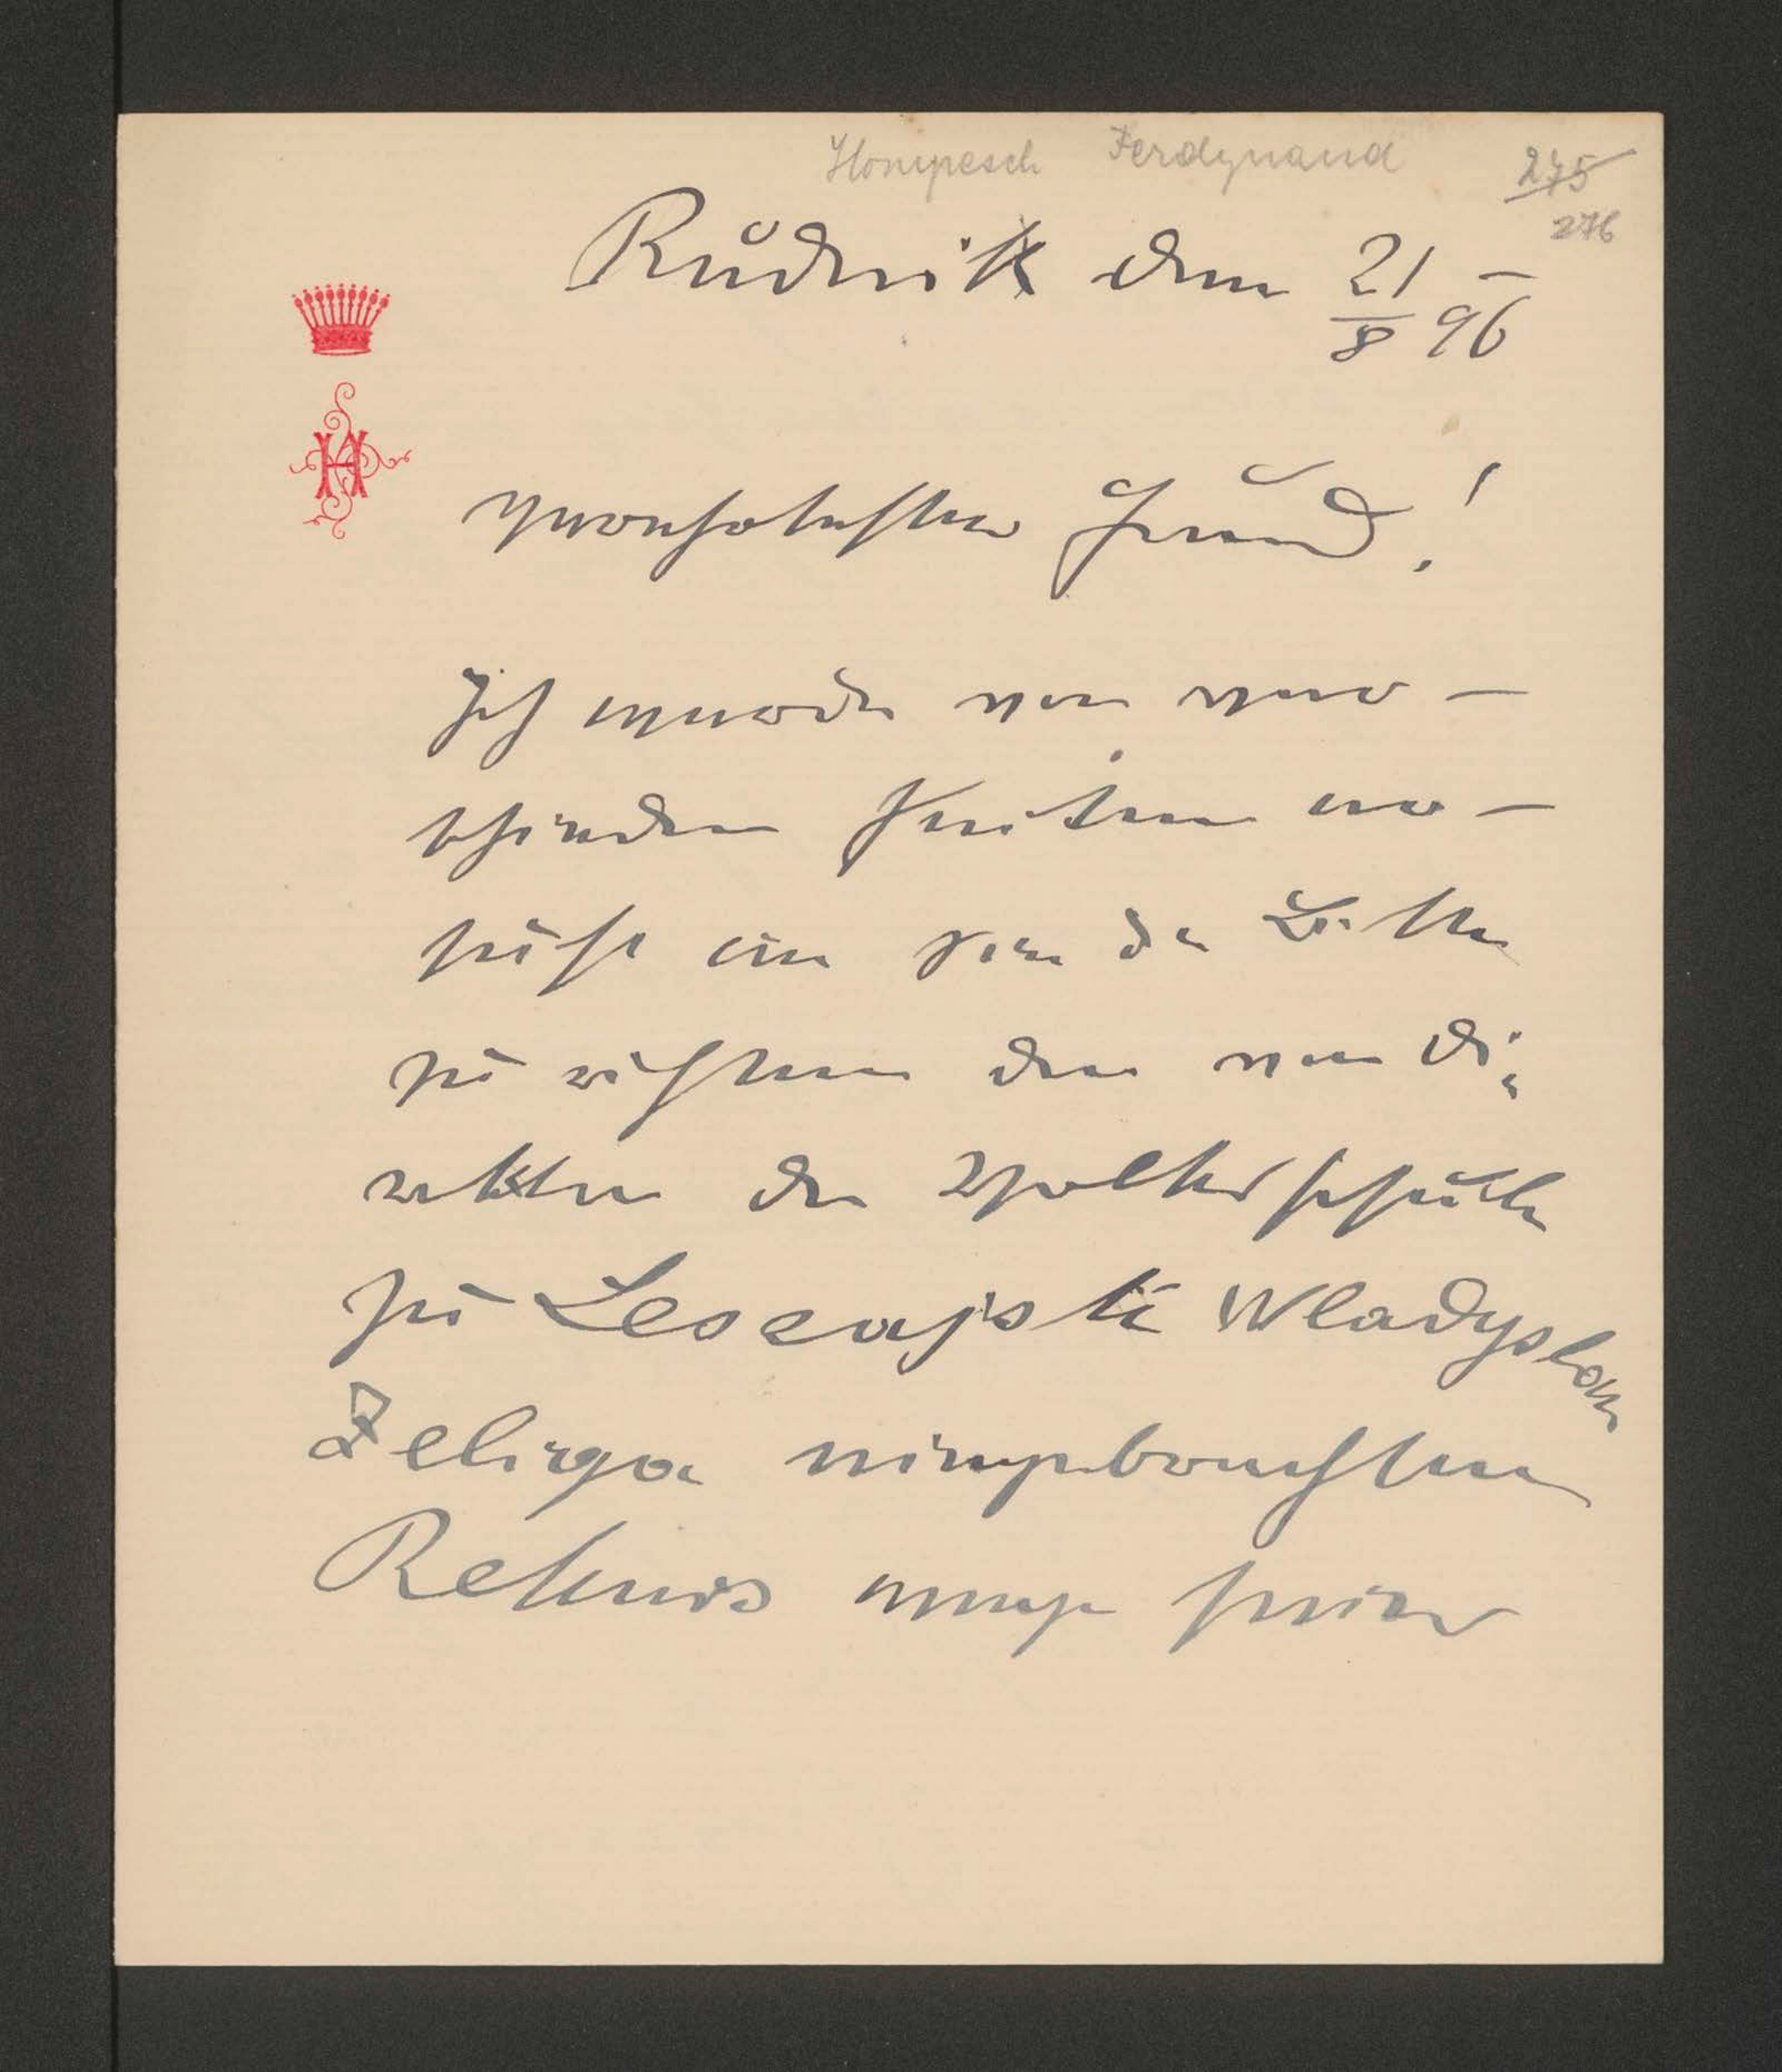 Hompesch Ferdynand 275
276
Rudnik den 21/8 96
H
Verehrtester Freund!
Ich werde von ver-
schiedenen Seiten er-
sucht an Sie die Bitte
zu richten den vom Di-
rektor der Volksschule
zu Lescajsk Wladyslaw
Zeliga eingebrachten
Rekurs wege seiner